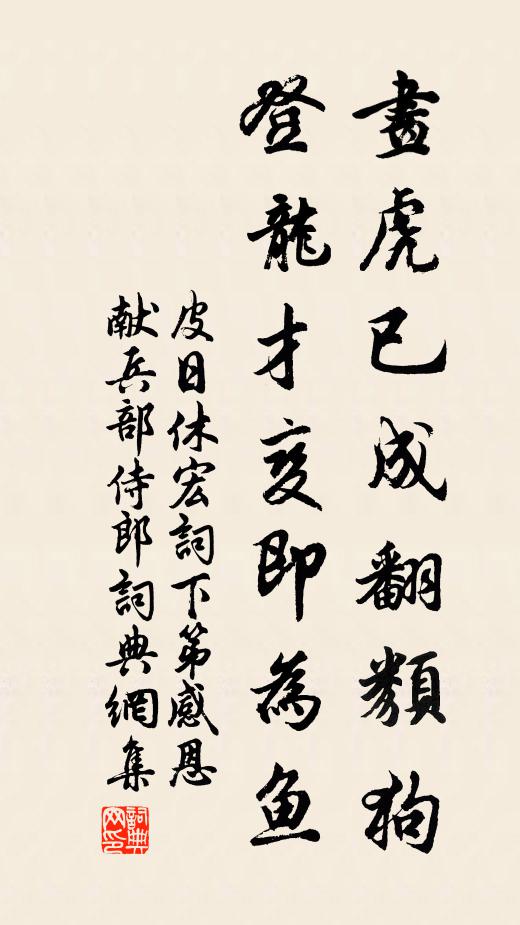 畫虎已成翻類狗
登龍才變即為魚
皮日休宏詞下第感恩
献兵部侍郎詞典網集
詞典网印